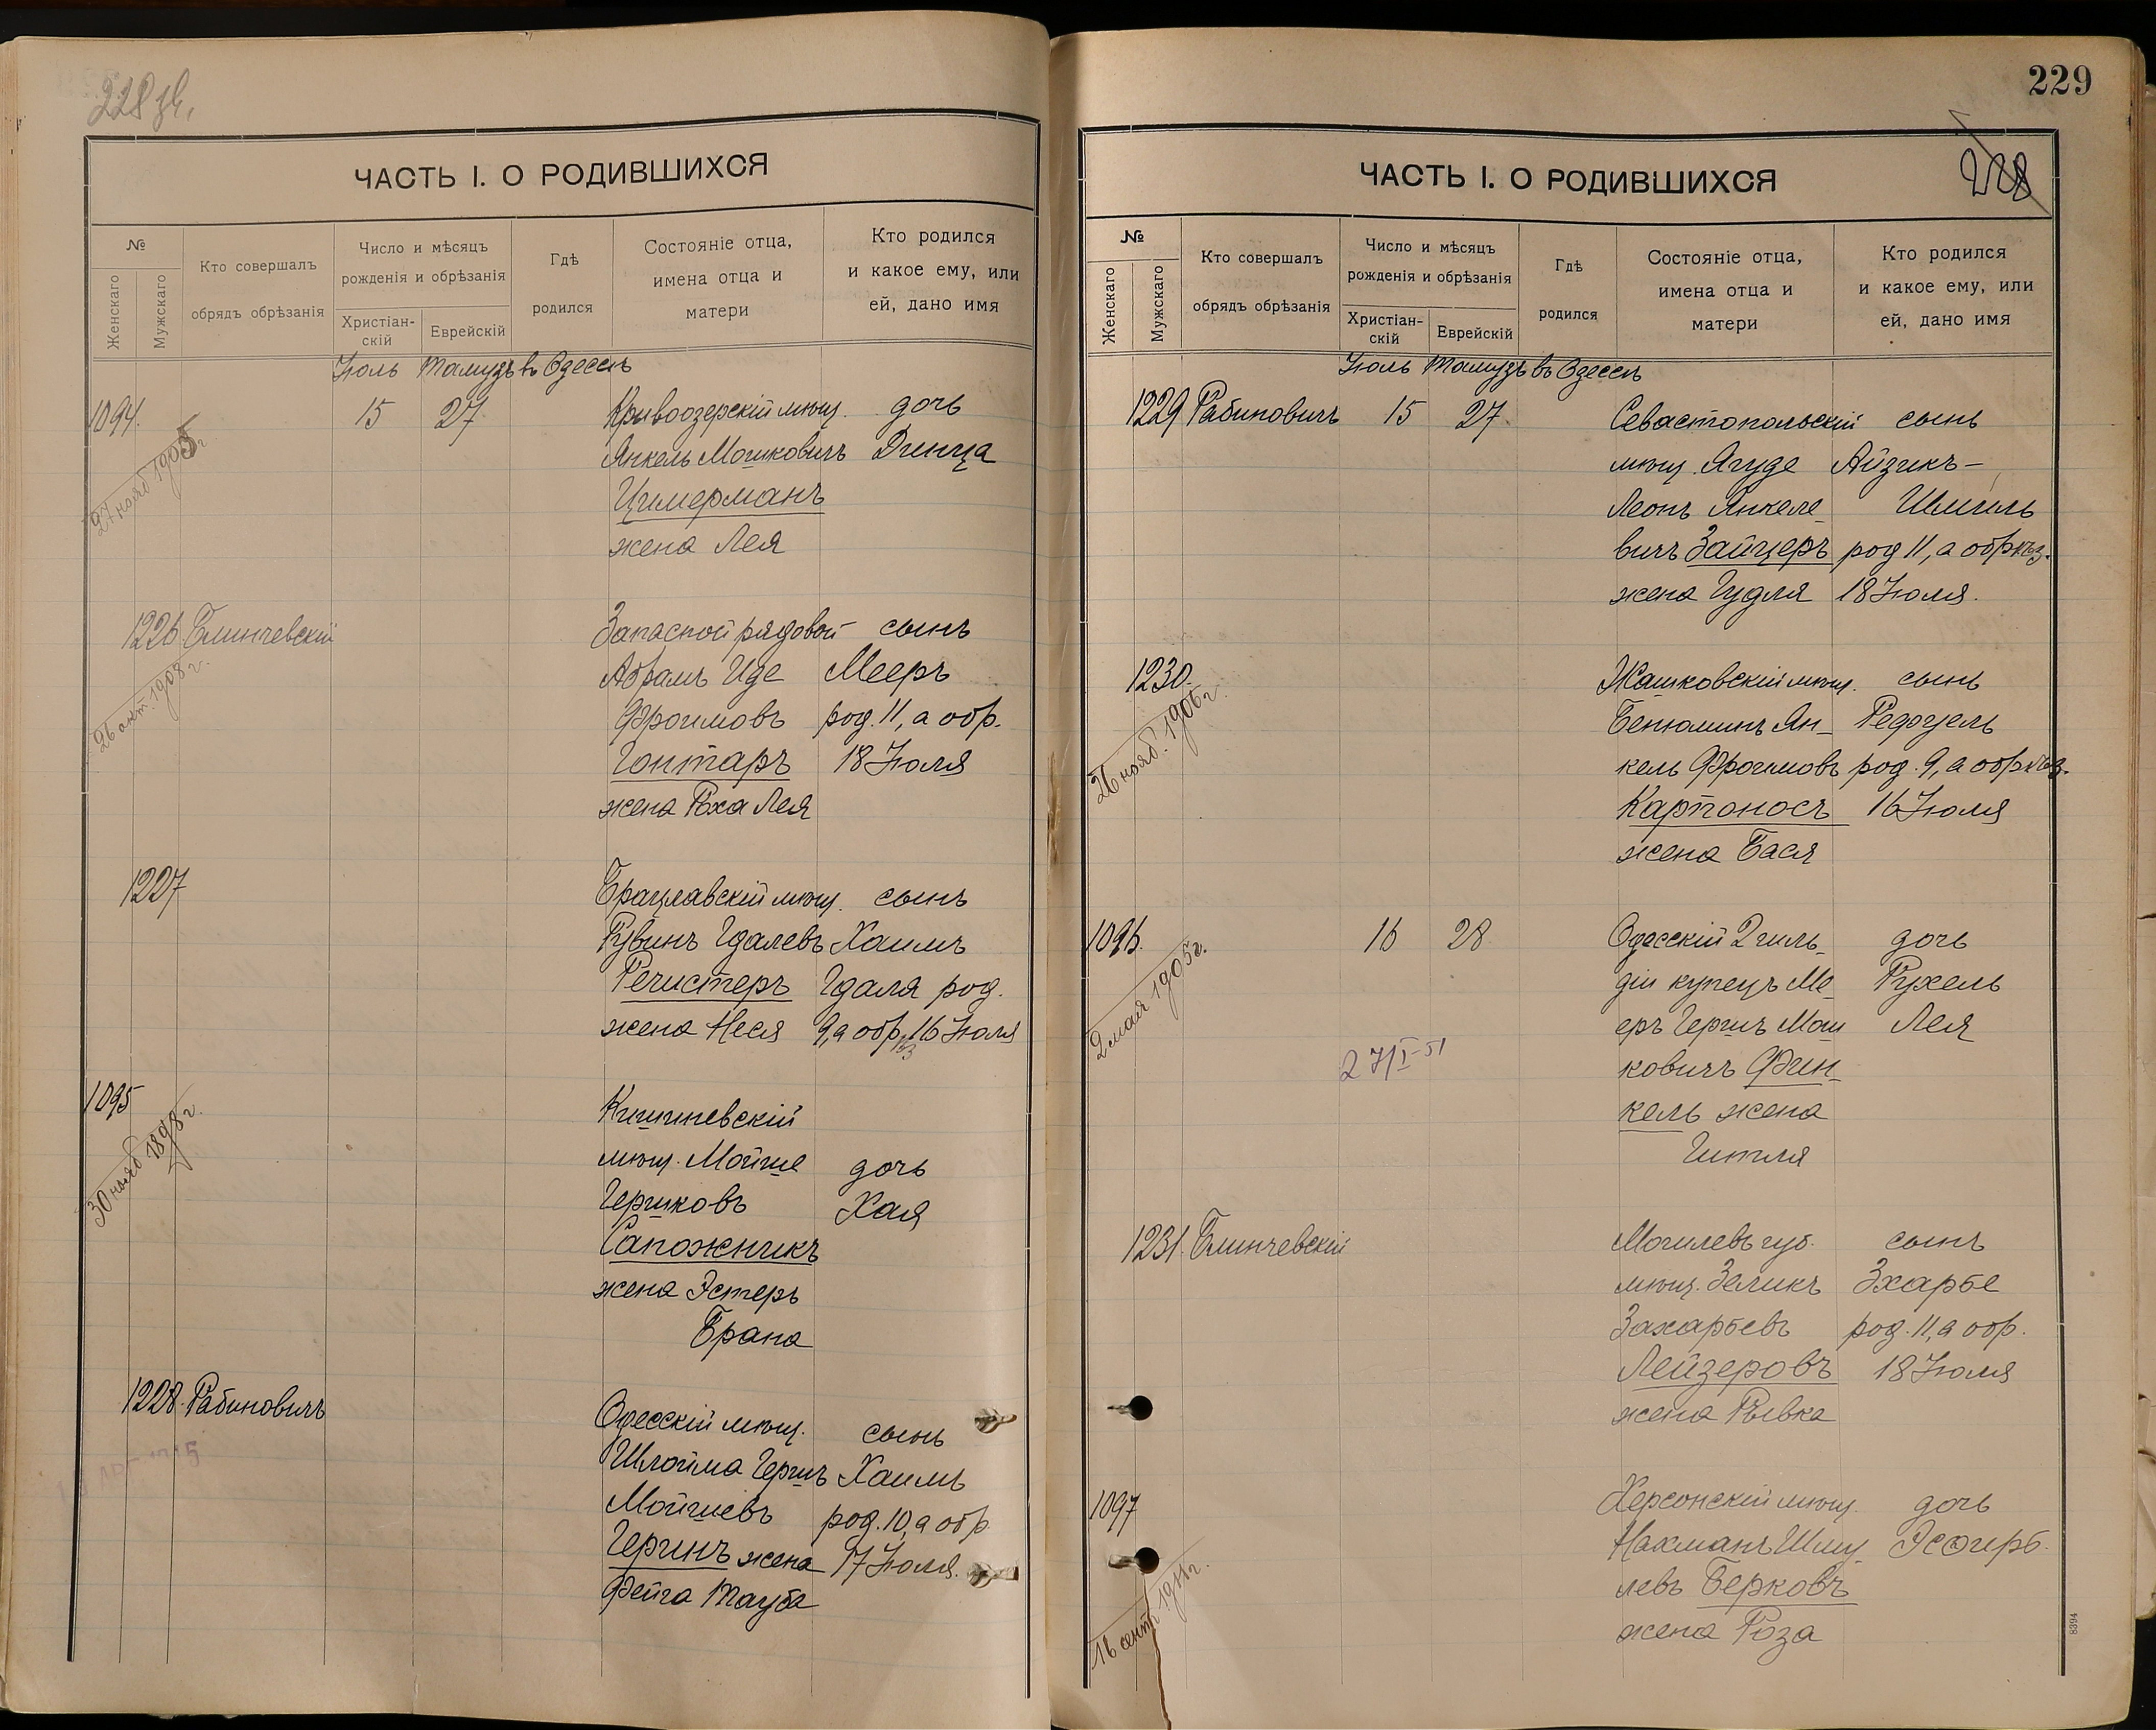 228 зв.
ЧАСТЬ I. О РОДИВШИХСЯ
№
Женскаго
Мужскаго
Кто совершалъ
обрядъ обрѣзанія
Число и мѣсяцъ
рожденія и обрѣзанія
Христіан-
скій
Еврейскій
Гдѣ
родился
Состояніе отца,
имена отца и
матери
Кто родился
и какое ему, или
ей, дано имя
Іюль Тамузъ въ Одессѣ
1094. 15 27. Кривоозерскій мѣщ. дочь
Янкель Мошковичъ Динца
Цимерманъ
жена Лея
27 нояб 1905 г
1226. Блинчевскій Запасной рядовой сынъ
Абрамъ Иде Мееръ
Фроимовъ род. 11, а обр.
Гонтаръ 18 Іюля
жена Рѣха Лея
26 окт. 1908 г.
1227 Брацлавскій мѣщ. сынъ
Рувинъ Гдалевъ Хаимъ
Речистеръ Гдаля род.
жена Неся 9, а обр. 16 Іюля
1095 Кишиневскій
мѣщ. Мойше дочь
Гершковъ Хая
Сапожникъ
жена Эстеръ
Брана
30 нояб 1898 г.
1228. Рабиновичъ Одесскій мѣщ. сынъ
Шлойма Гершъ Хаимъ
Мойшевъ род. 10, а обр
Геринъ жена 17 Іюля.
Фейга Тауба
229
228
ЧАСТЬ I. О РОДИВШИХСЯ
№
Женскаго
Мужскаго
Кто совершалъ
обрядъ обрѣзанія
Число и мѣсяцъ
рожденія и обрѣзанія
Христіан-
скій
Еврейскій
Гдѣ
родился
Состояніе отца,
имена отца и
матери
Кто родился
и какое ему, или
ей, дано имя
Іюль Тамузъ въ Одессѣ
1229 Рабиновичъ 15 27. Севастопольскій сынъ
мѣщ. Ягуде Айзикъ-
Леонъ Янкеле- Шмиль
вичъ Зайцеръ род 11, а обрѣз.
жена Гудля 18 Іюля.
1230. Жашковскій мѣщ. сынъ
Бенюминъ Ян- Рефоуель
кель Фроимовъ род. 9, а обрѣз.
Картоносъ 16 Іюля
жена Бася
26 нояб. 1906 г.
1096. 16 28. Одесскій 2 гиль-
діи купецъ Ме- дочь
еръ Гершъ Мош Рухель
ковичъ Фин- Лея
кель жена
Гитля
2 мая 1905 г.
27/I-51
1231. Блинчевскій Могилевъ губ. сынъ
мѣщ. Зеликъ Зхарье
Захарьевъ род. 11, а обр.
Лейзеровъ 18 Іюля
жена Рывка
1097 Херсонскій мѣщ. дочь
Нахманъ Шму- Эсѳирь.
левъ Берковъ
жена Роза
16 сент. 1911 г.
8394